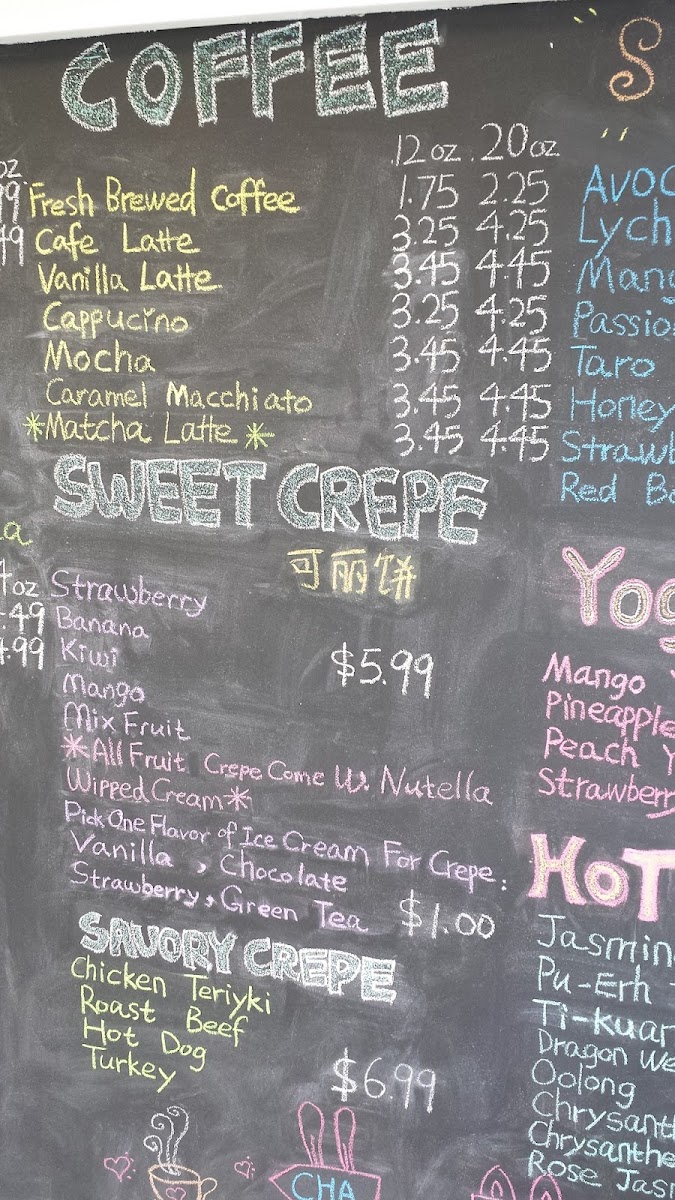 COFFEE
12 oz. 20 oz
Fresh Brewed Coffee 1.75 2.25
Cafe Latte 3.25 4.25
Vanilla Latte 3.45 4.45
Cappucino 3.25 4.25
Mocha 3.45 4.45
Caramel Macchiato 3.45 4.45
*Matcha Latte* 3.45 4.45
SWEET CREPE
可丽饼
Strawberry
Banana
Kiwi
$5.99
Mango
Mix Fruit
*All Fruit Crepe Come W. Nutella
Wipped Cream*
Pick One Flavor of Ice Cream For Crepe:
Vanilla, Chocolate
Strawberry, Green Tea $1.00
SAVORY CREPE
Chicken Teriyki
Roast Beef
Hot Dog
Turkey
$6.99
CHA
oz
99
49
oz
.49
.99
S
Avoc
Lych
Mang
Passio
Taro
Honey
Strawb
Red B
Yog
Mango
Pineapple
Peach Y
Strawberry
HOT
Jasmin
Pu-Erh
Ti-kuan
Dragon We
Oolong
Chrysanth
Chrysanthe
Rose Jas